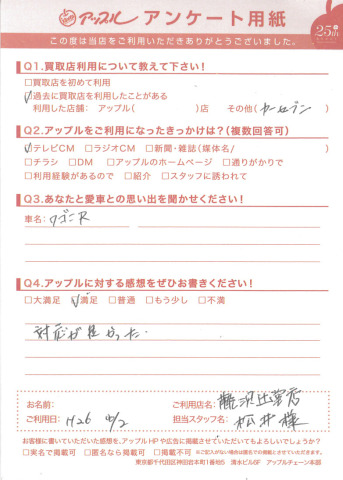 アップル アンケート用紙 25th
この度は当店をご利用いただきありがとうございました。
Q1.買取店利用について教えて下さい!
□買取店を初めて利用
☑過去に買取店を利用したことがある
利用した店舗: アップル( )店 その他(カーセブン)
Q2.アップルをご利用になったきっかけは?(複数回答可)
☑テレビCM □ラジオCM □新聞・雑誌(媒体名/ )
□チラシ □DM □アップルのホームページ □通りがかりで
□利用経験があるので □紹介 □スタッフに誘われて
Q3.あなたと愛車との思い出を聞かせください!
車名: ワゴンR
Q4.アップルに対する感想をぜひお書きください!
□大満足 ☑満足 □普通 □もう少し □不満
対応が良かった。
お名前: ご利用店名: 藤沢辻堂店
ご利用日: H26 10/2 担当スタッフ名: 松井様
お客様に書いていただいた感想を、アップルHPや広告に掲載させていただいてもよろしいでしょうか?
□実名で掲載可 □匿名なら掲載可 □掲載不可 ※ご記入がない場合は匿名での掲載とさせていただきます。
東京都千代田区神田岩本町1番地5 清水ビル5F アップルチェーン本部